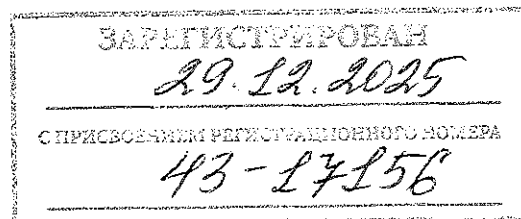 ЗАРЕГИСТРИРОВАН
29.12.2025
С ПРИСВОЕНИЕМ РЕГИСТРАЦИОННОГО НОМЕРА
43-17156